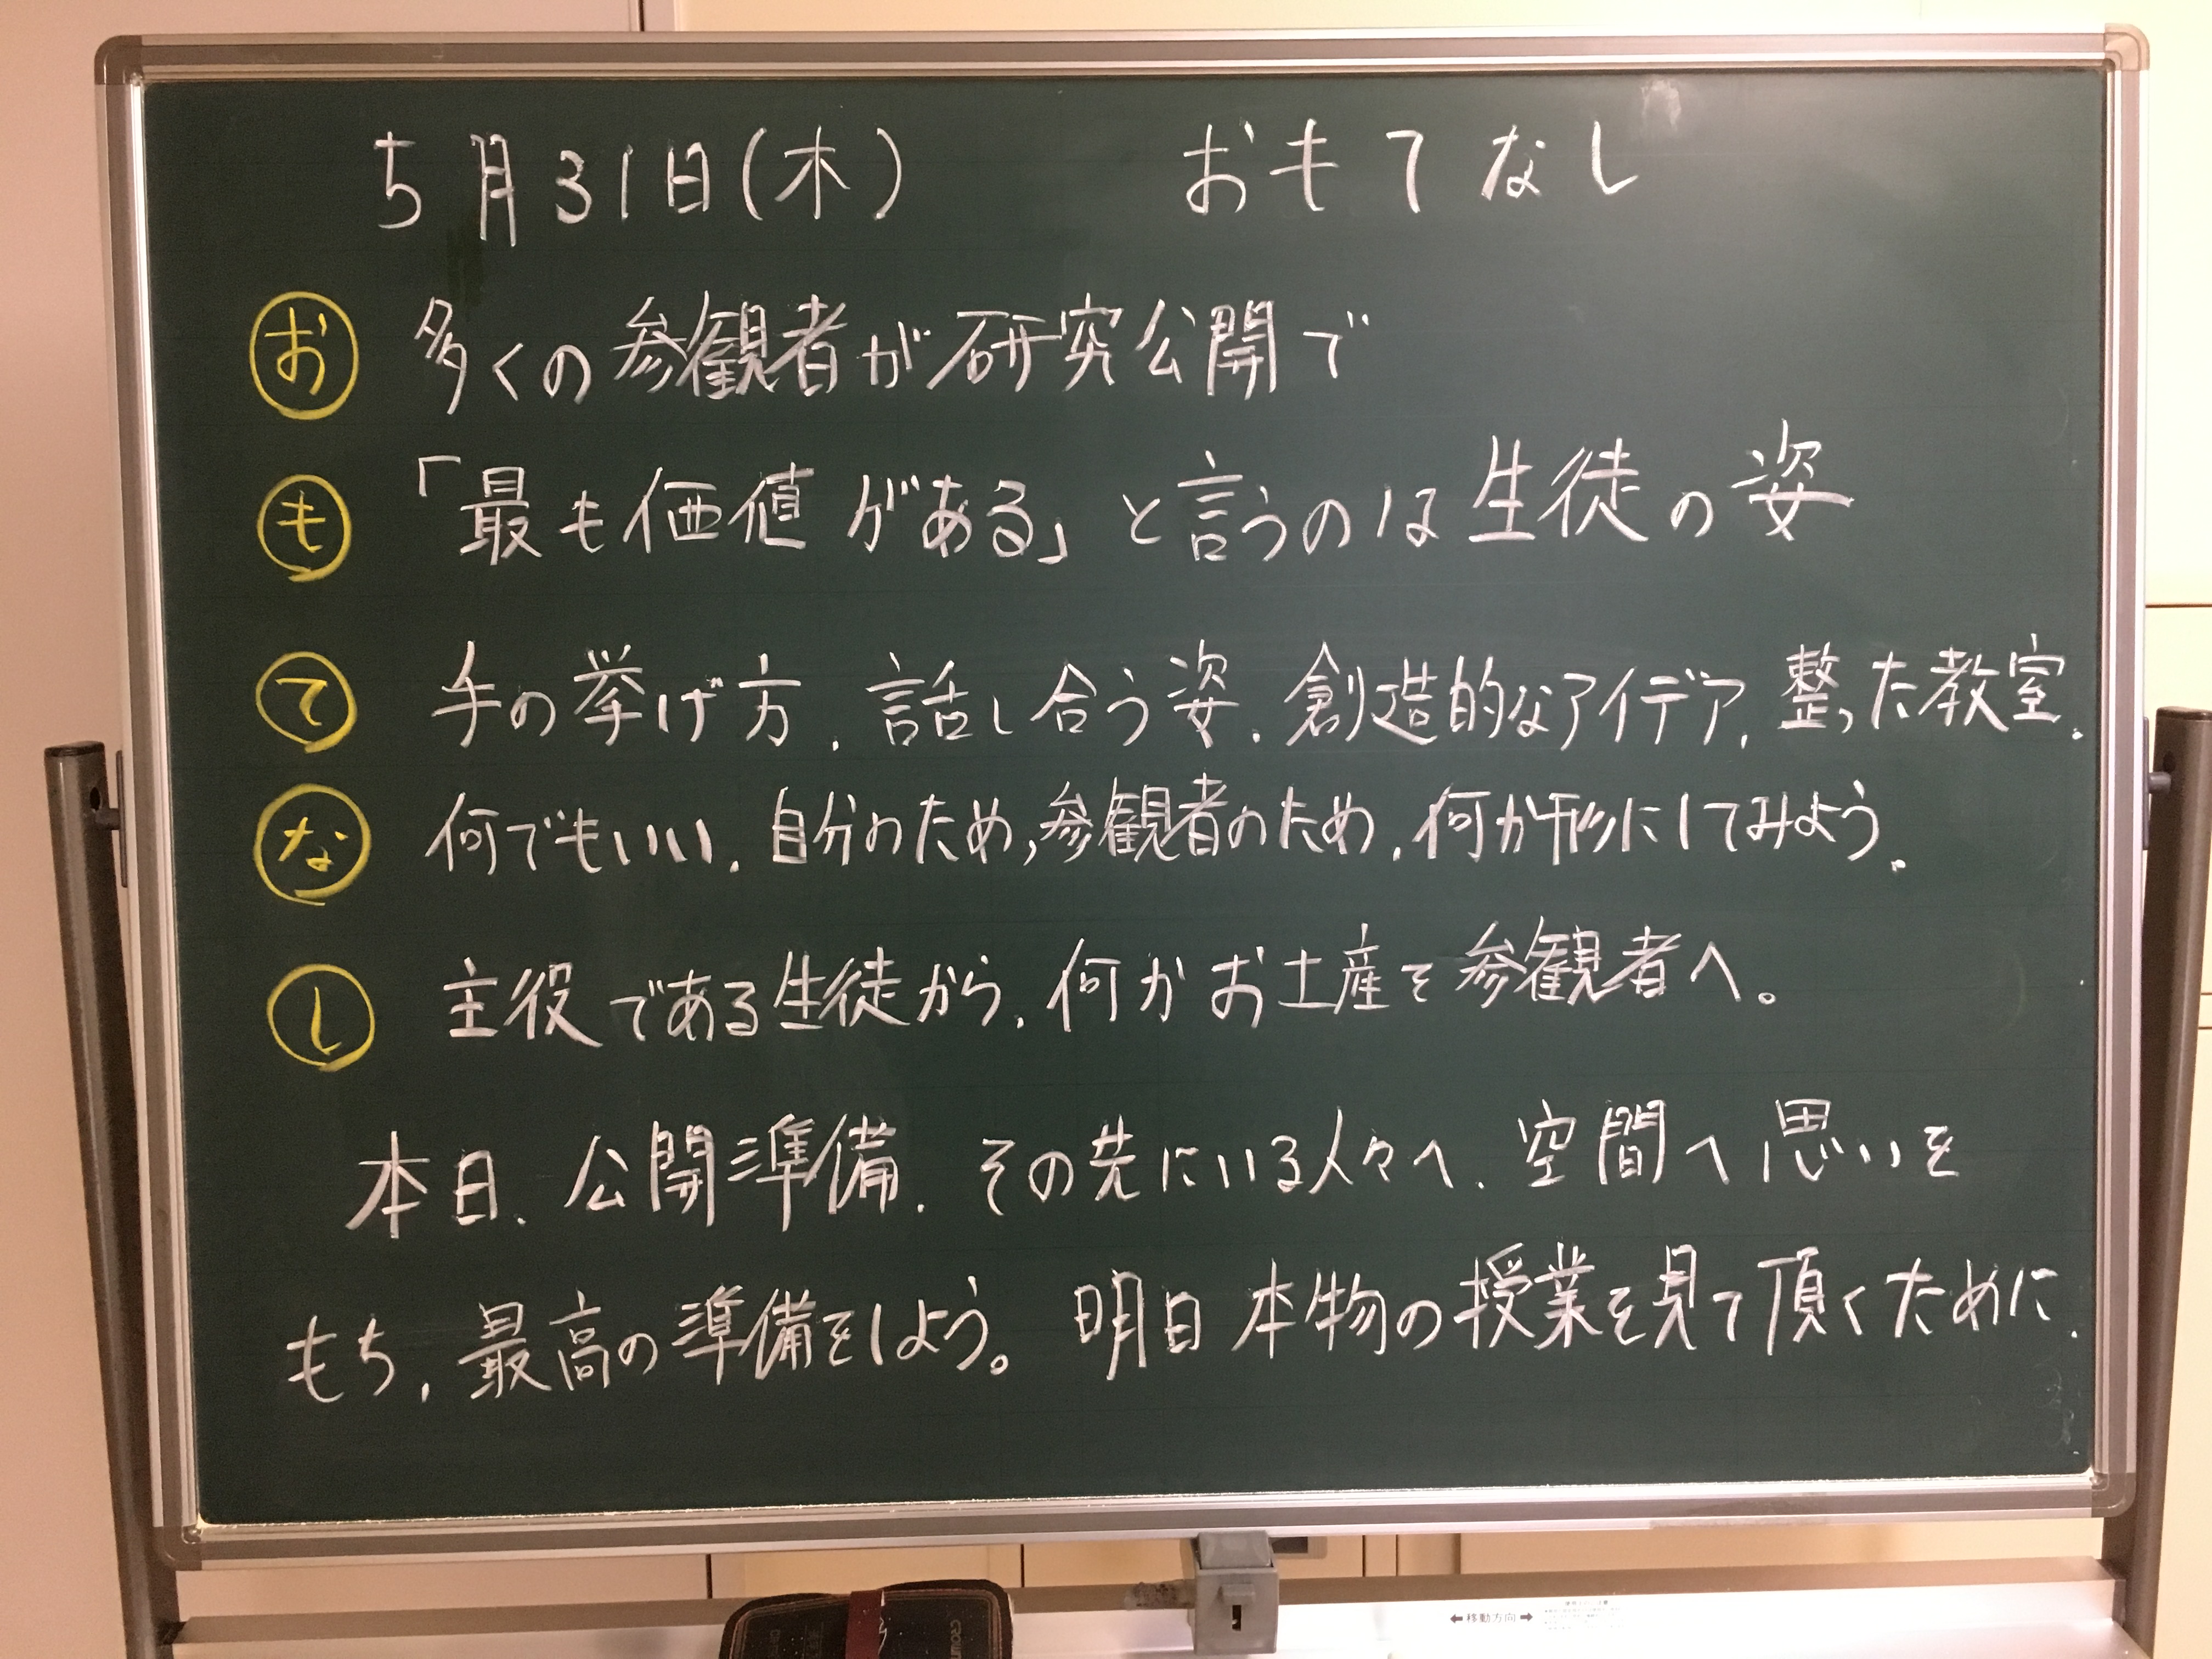 5月31日(木) おもてなし
お 多くの参観者が研究公開で
も 「最も価値がある」と言うのは生徒の姿
て 手の挙げ方、話し合う姿、創造的なアイデア、整った教室、
な 何でもいい、自分のため、参観者のため、何か形にしてみよう。
し 主役である生徒から、何かお土産を参観者へ。
本日、公開準備、その先にいる人々へ、空間へ思いを
もち、最高の準備をしよう。明日本物の授業を見て頂くために、
←移動方向→
CROWN